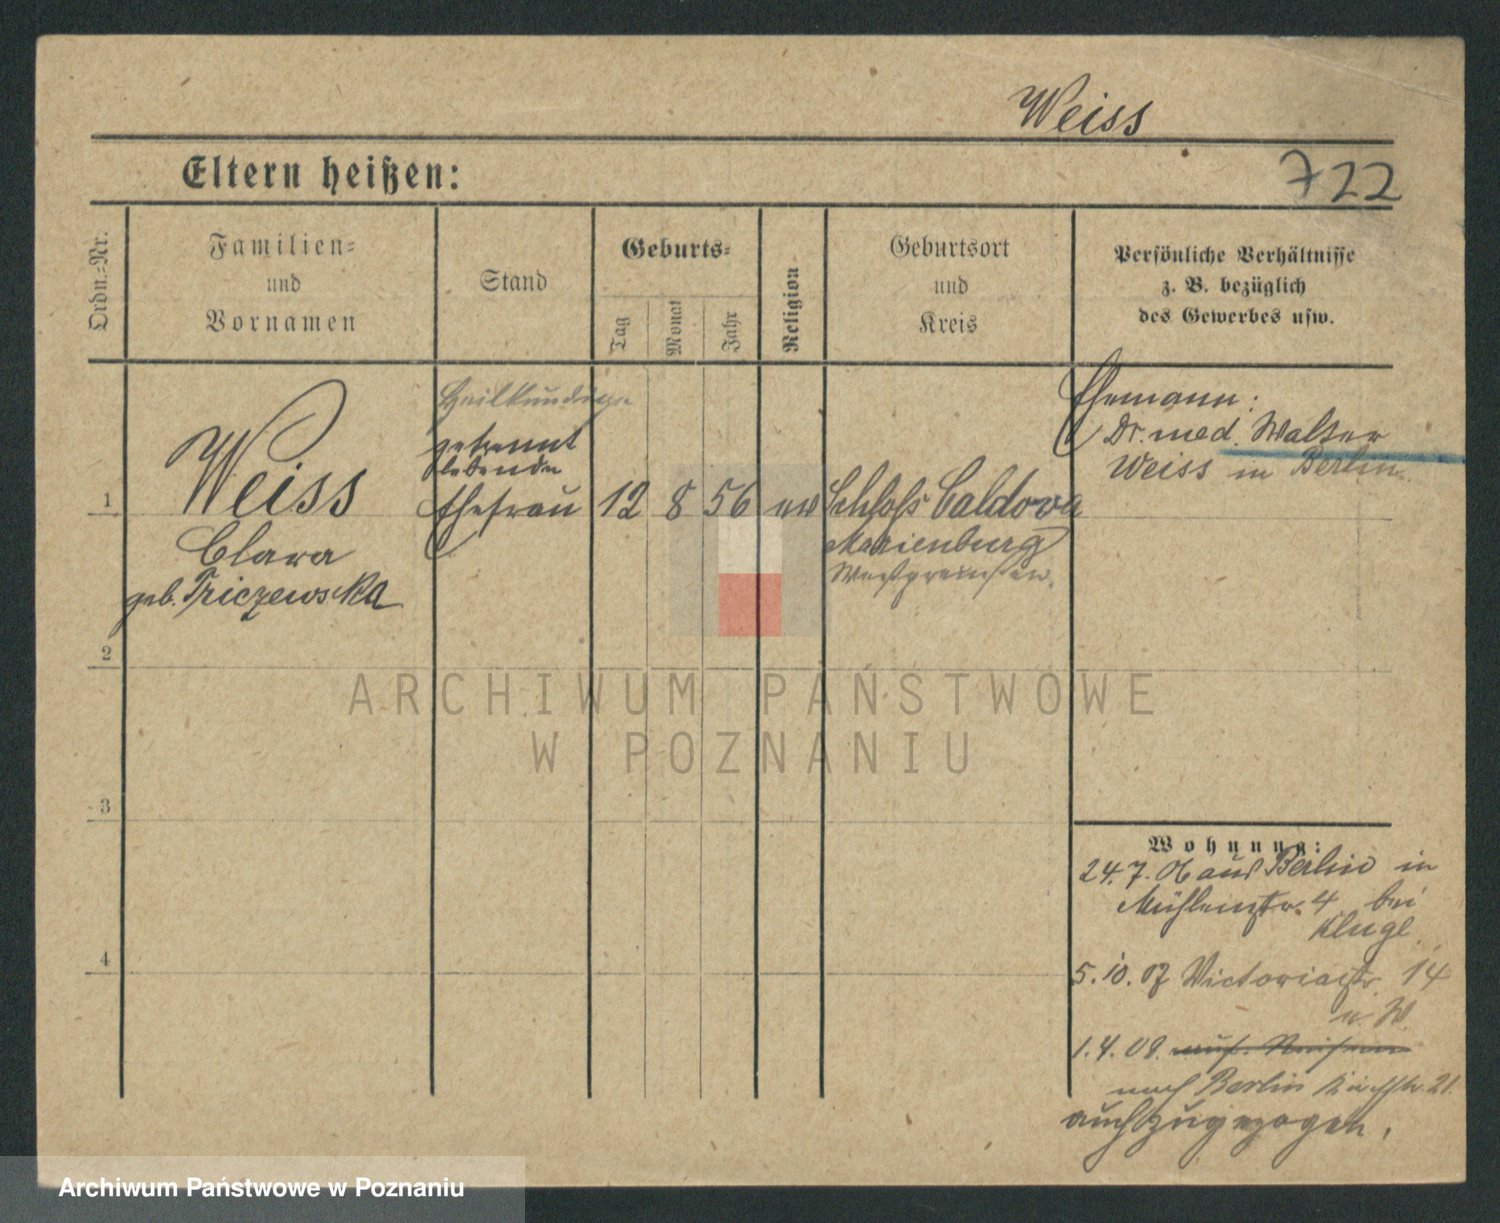 Weiss
722
Eltern heißen:
Ordn.-Nr.
Familien-
und
Vornamen
Stand
Geburts-
Tag
Monat
Jahr
Religion
Geburtsort
und
Kreis
Persönliche Verhältnisse
z. B. bezüglich
des Gewerbes usw.
1
Weiss
Clara
geb. Triczewska
Heilkundige
getrennt
lebende
Ehefrau
12
8
56
ev
Schloss Caldova
Marienburg
Westpreussen.
Ehemann:
Dr. med. Walter
Weiss in Berlin.
2
3
4
Wohnung:
24.7.06 aus Berlin in
Mühlenstr. 4 bei
Kluge
5.10.07 Victoriastr 14
1.4.08. auf Reisen
nach Berlin 21.
zugezogen.
ARCHIWUM PAŃSTWOWE
W POZNANIU
Archiwum Państwowe w Poznaniu